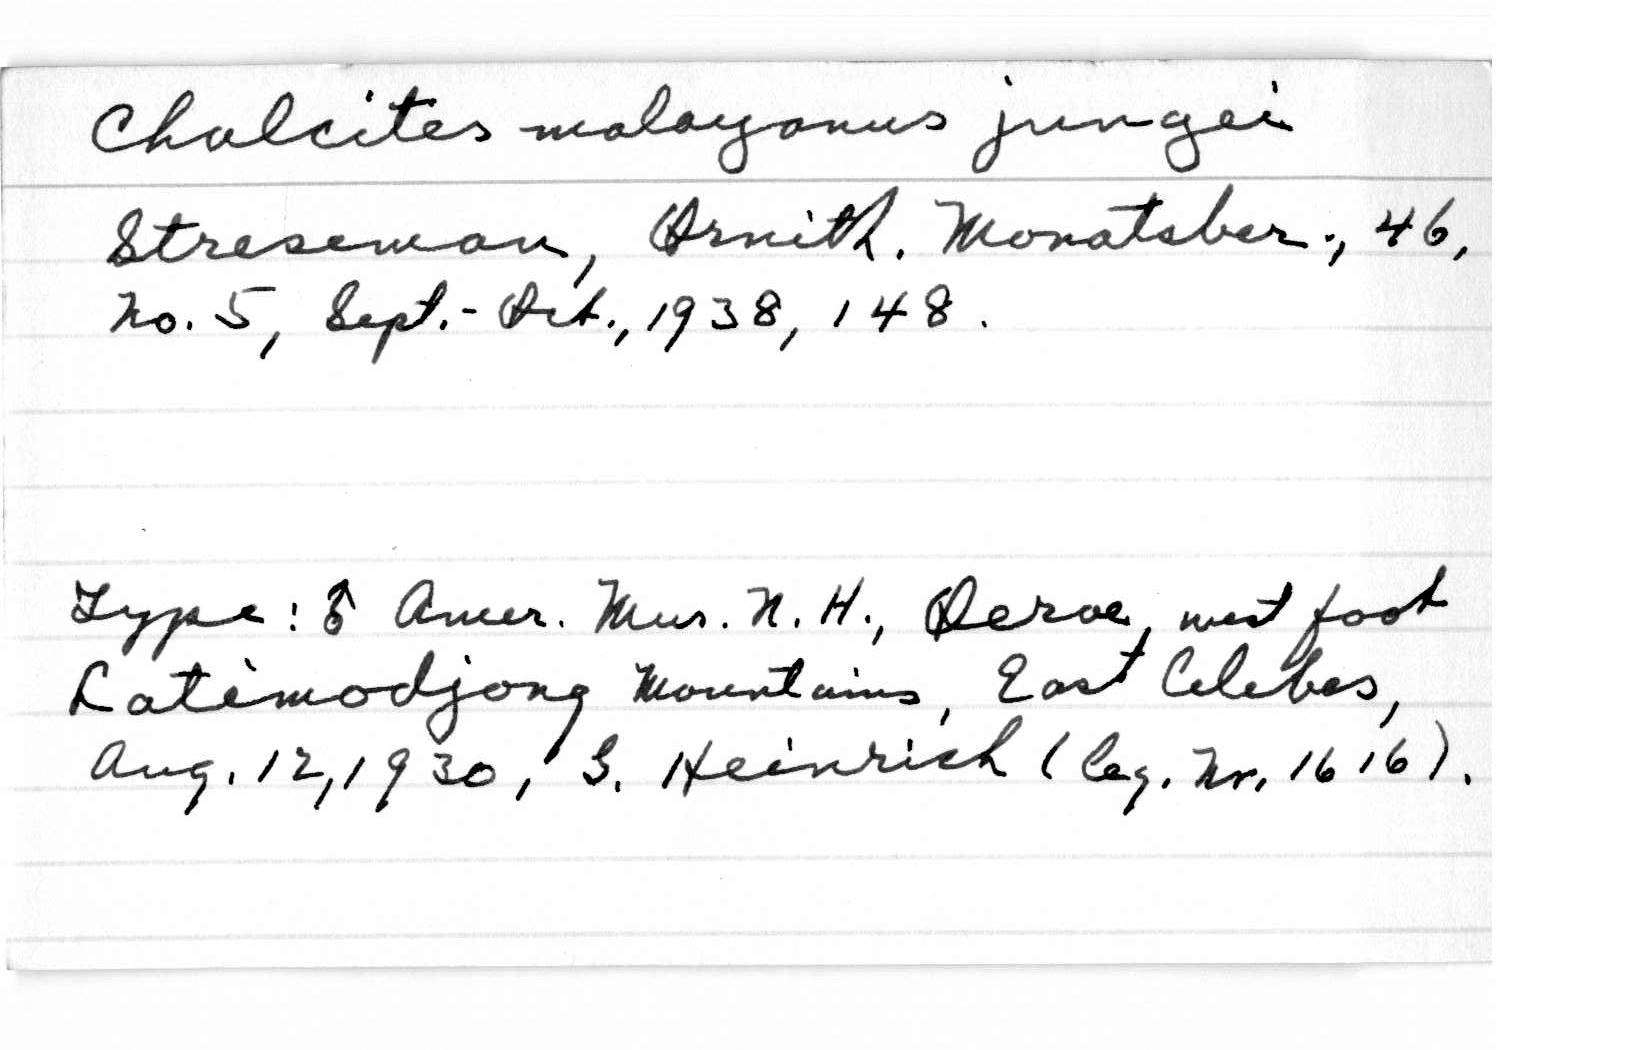 Chalcites malayanus jungei
Streseman, Ornith. Monatsber., 46,
No. 5, Sept.-Oct., 1938, 148.
Type: ♂ Amer. Mus. N. H., west foot
Latimodjong Mountains, East Celebes,
Aug. 12, 1930, G. Heinrich (leg. Nr. 1616).